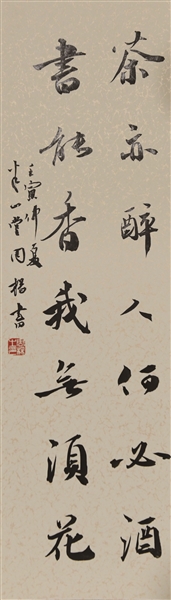 茶亦醉人何必酒
書能香我無須花
壬寅仲夏
半山堂周楷書